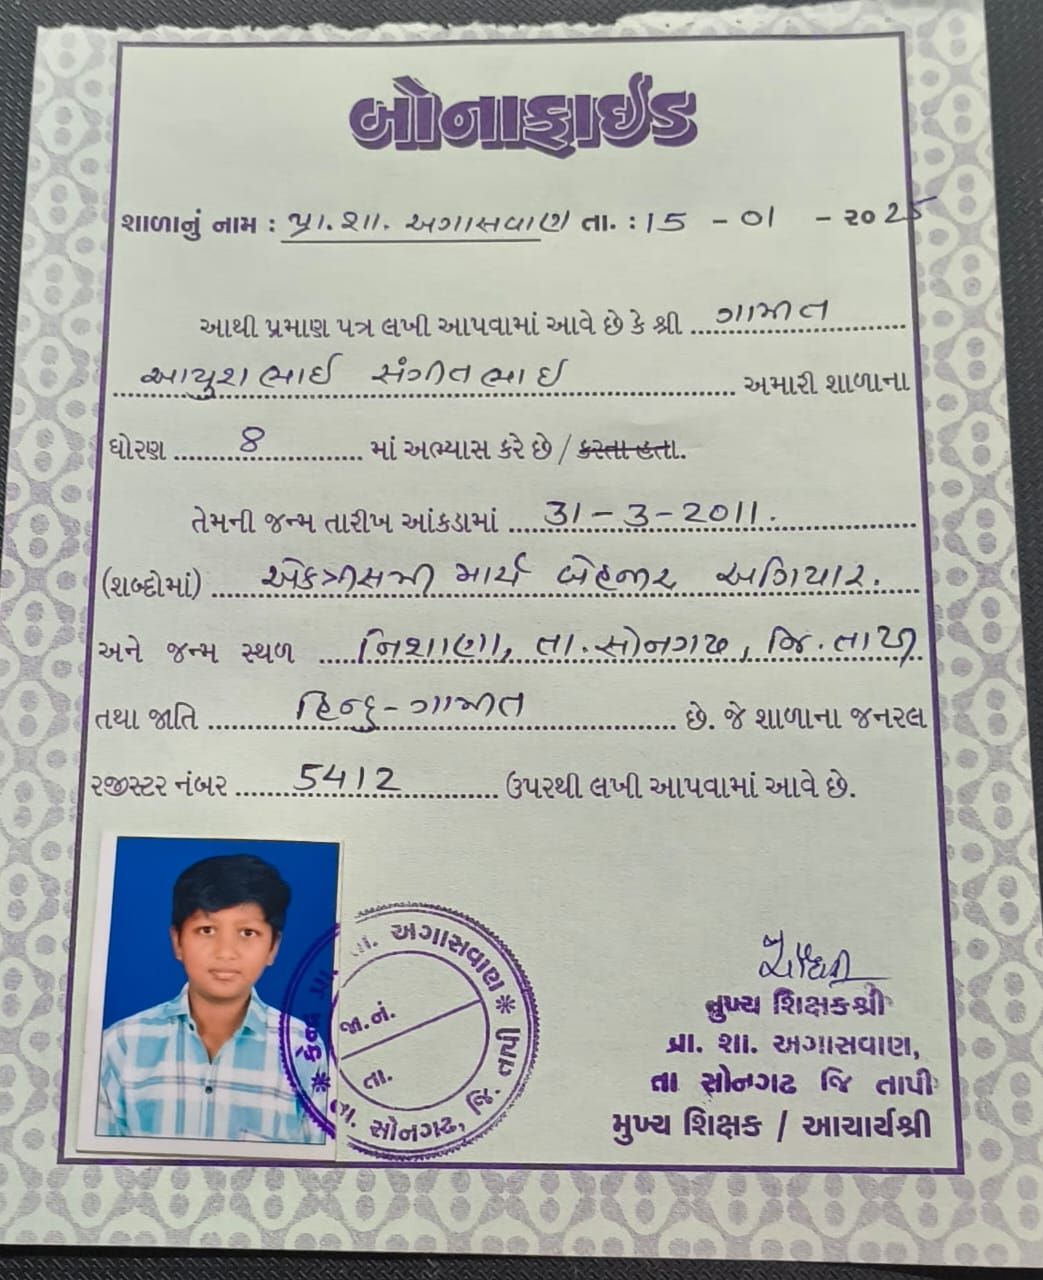 બોનાફાઈડ
શાળાનું નામ : પ્રા.શા. અગાસવાણ તા. : 15 - 01 - ૨૦25
આથી પ્રમાણ પત્ર લખી આપવામાં આવે છે કે શ્રી ગામીત
આયુશભાઈ સંગીતભાઈ અમારી શાળાના
ધોરણ 8 માં અભ્યાસ કરે છે / કરતા હતા.
તેમની જન્મ તારીખ આંકડામાં 31-3-2011.
(શબ્દોમાં) એકત્રીસમી માર્ચ બેહજાર અગિયાર.
અને જન્મ સ્થળ નિશાણા, તા.સોનગઢ, જિ.તાપી
તથા જાતિ હિન્દુ-ગામીત છે. જે શાળાના જનરલ
રજીસ્ટર નંબર 5412 ઉપરથી લખી આપવામાં આવે છે.
કેન્દ્ર પ્રા. શા. અગાસવાણ
જા.નં.
તા.
તા. સોનગઢ, જિ. તાપી
મુખ્ય શિક્ષકશ્રી
પ્રા. શા. અગાસવાણ,
તા સોનગઢ જિ તાપી
મુખ્ય શિક્ષક / આચાર્યશ્રી